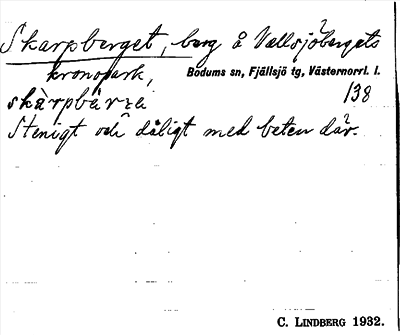 Skarpberget, berg å Vallsjöbergets
kronopark, Bodums sn, Fjällsjö tg, Västernorrl. l.
138
Stenigt och dåligt med beten där.
C. LINDBERG 1932.